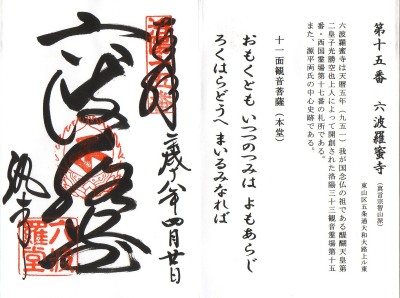 第十五番　六波羅蜜寺
（真言宗智山派）
東山区五条通大和大路上ル東
六波羅蜜寺は天暦五年（九五一）我が国念仏の祖である醍醐天皇第
二皇子光勝空也上人によって開創された洛陽三十三観音霊場第十五
番・西国霊場第十七番の札所である。
また、源平両氏の中心史跡である。
十一面観音菩薩（本堂）
おもくとも　いつつのつみは　よもあらじ
ろくはらどうへ　まいるみなれば
奉拝
八年四月廿日
六波羅堂